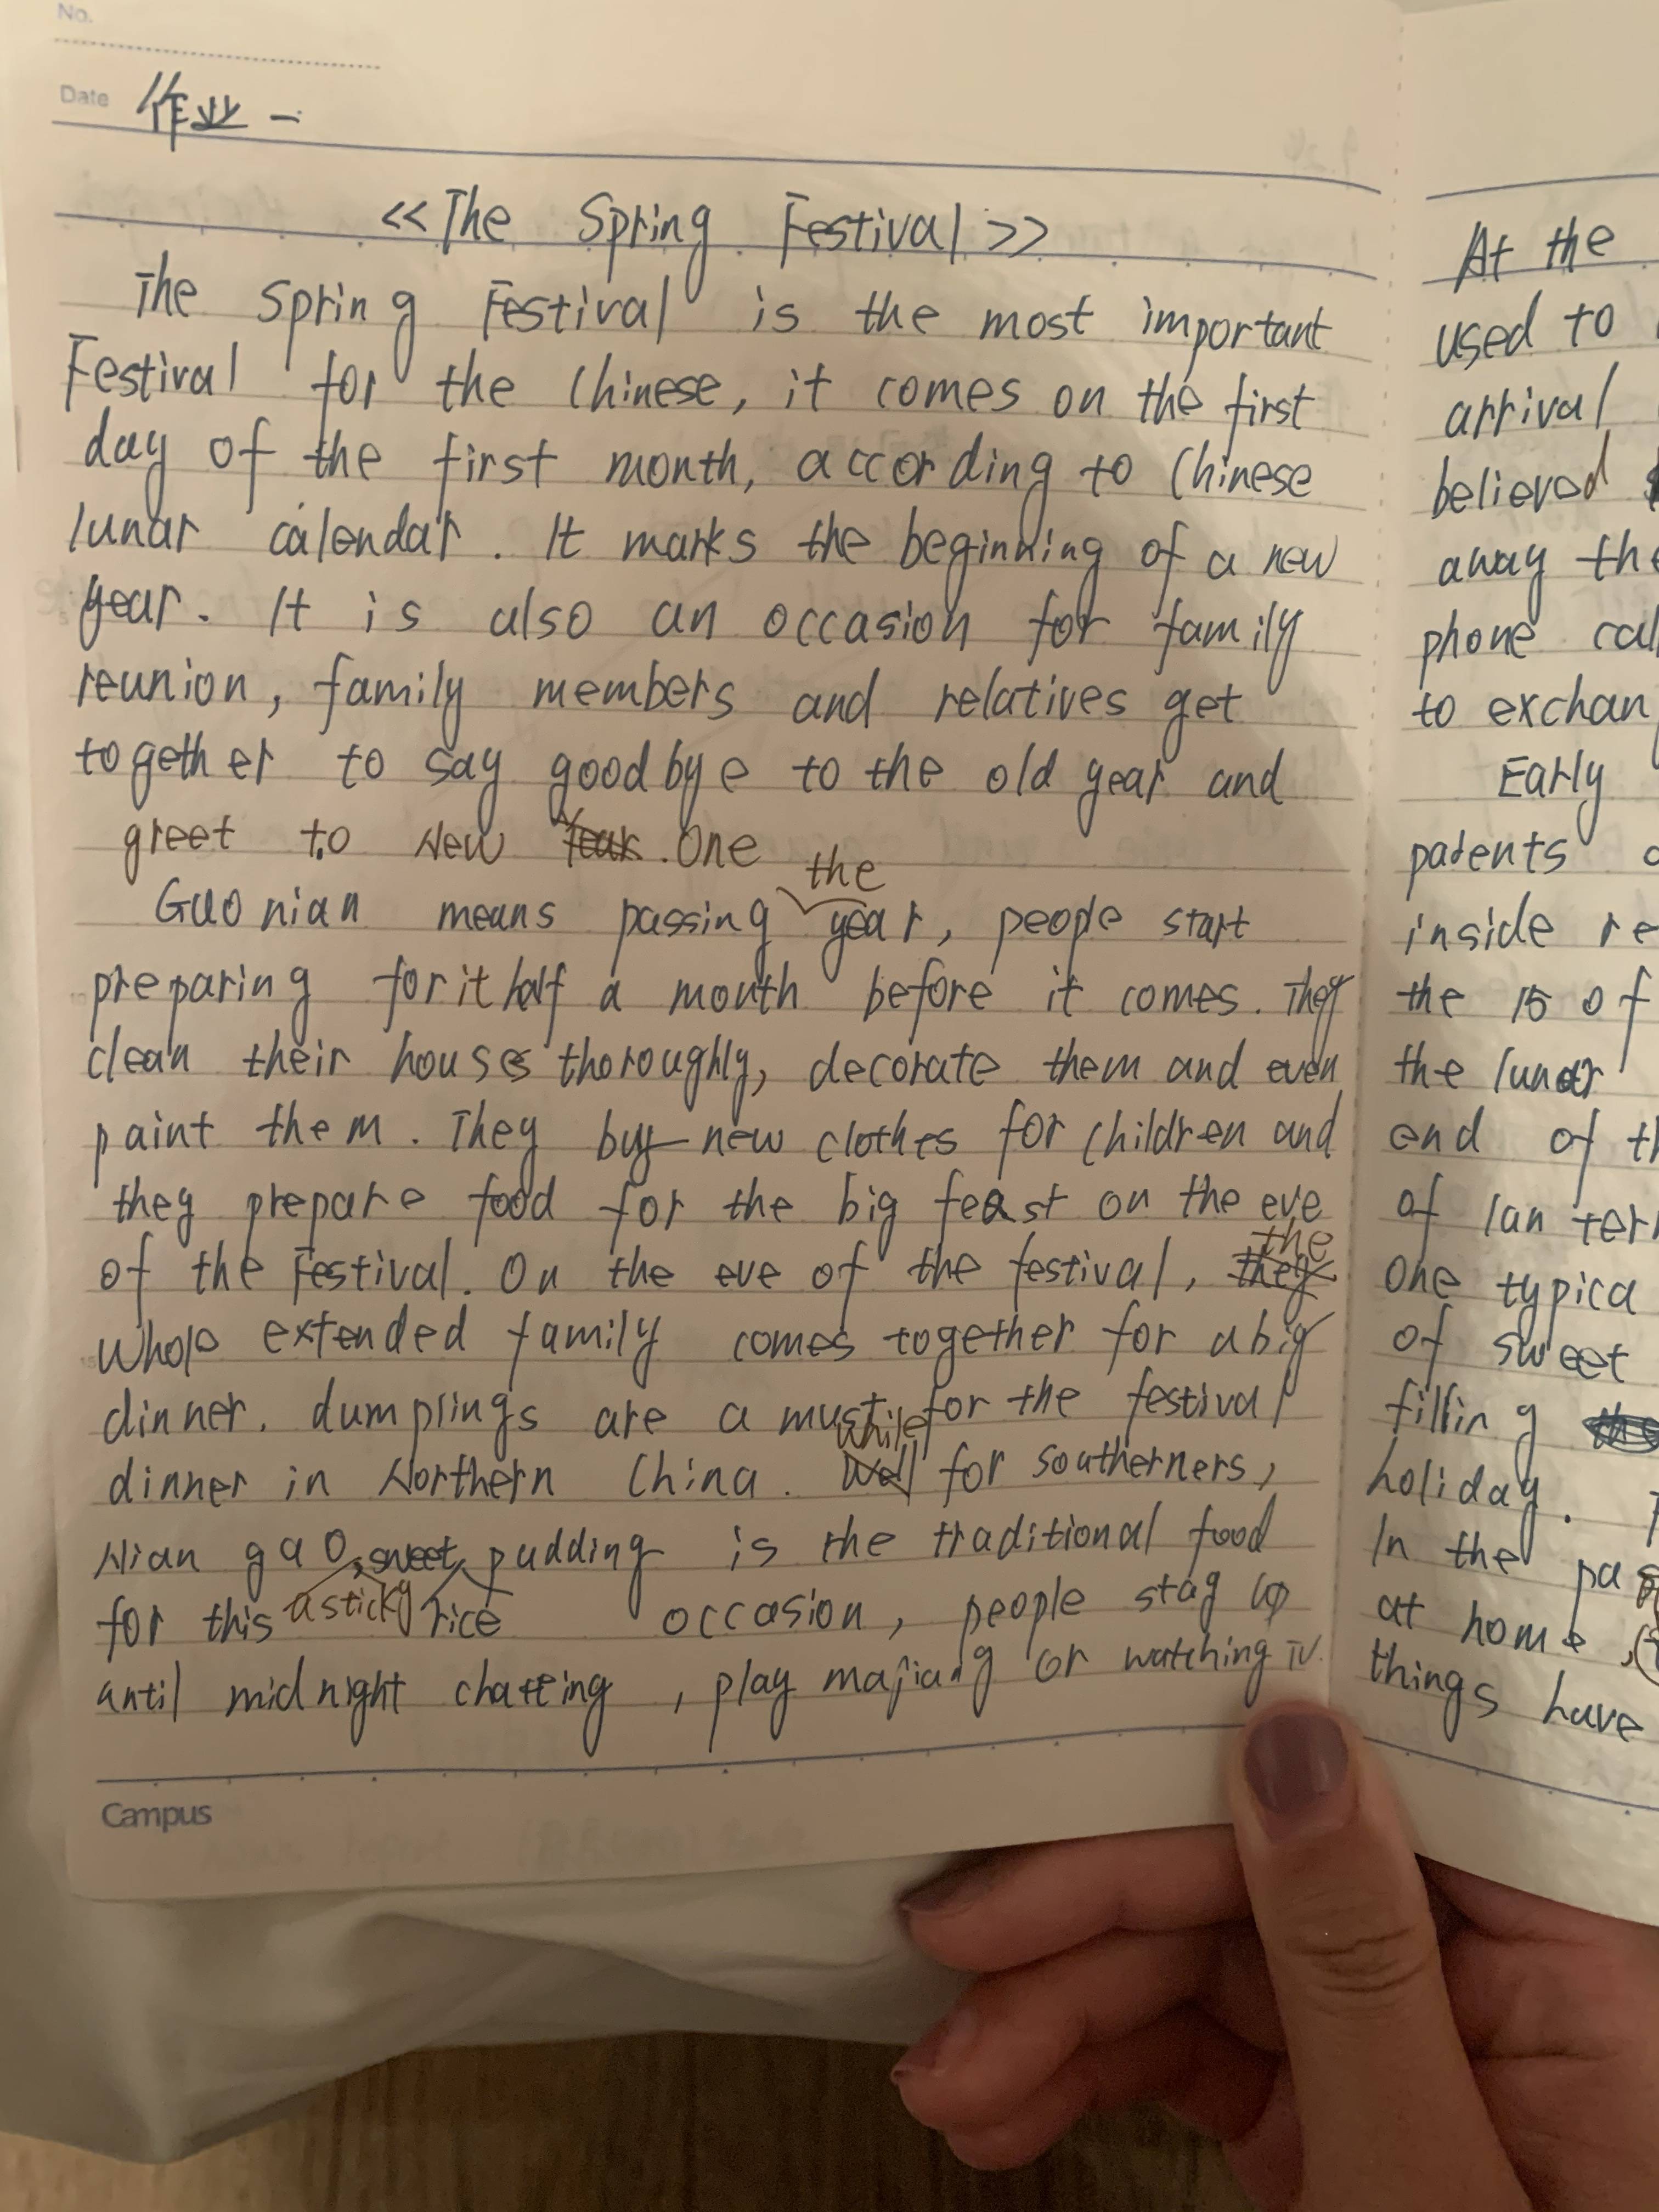 No.
Date 作业一
<<The Spring Festival>>
The Spring Festival is the most important
Festival for the Chinese, it comes on the first
day of the first month, according to Chinese
lunar calendar. It marks the beginning of a new
year. It is also an occasion for family
reunion, family members and relatives get
together to say goodbye to the old year and
greet to New Year. One
the
Guo nian means passing year, people start
preparing for it half a month before it comes. They
clean their houses thoroughly, decorate them and even
paint them. They buy new clothes for children and
they prepare food for the big feast on the eve
the
of the Festival. On the eve of the festival, they
whole extended family comes together for a big
dinner. dumplings are a must for the festival
while
dinner in Northern China. Well for southerners,
Nian gao, sweet pudding is the traditional food
for this a sticky rice occasion, people stay up
until midnight chatting, play majiang or watching TV.
Campus
At the
used to
arrival
believed
away the
phone cal
to exchan
Early
patents
inside re
the 15 of
the lunar
end of th
of lan tern
one typica
of sweet
filling
holiday.
In the pa
at home,
things have